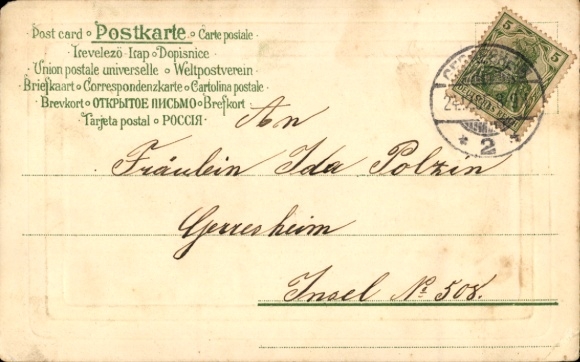 Post card • Postkarte • Carte postale
Levelező lap • Dopisnice
Union postale universelle • Weltpostverein
Briefkaart • Correspondenzkarte • Cartolina postale
Brevkort • ОТКРЫТОЕ ПИСЬМО • Brefkort
Tarjeta postal • РОССІЯ
5 5
* 2
An
Fräulein Ida Polzin
Gerresheim
Insel No 508.